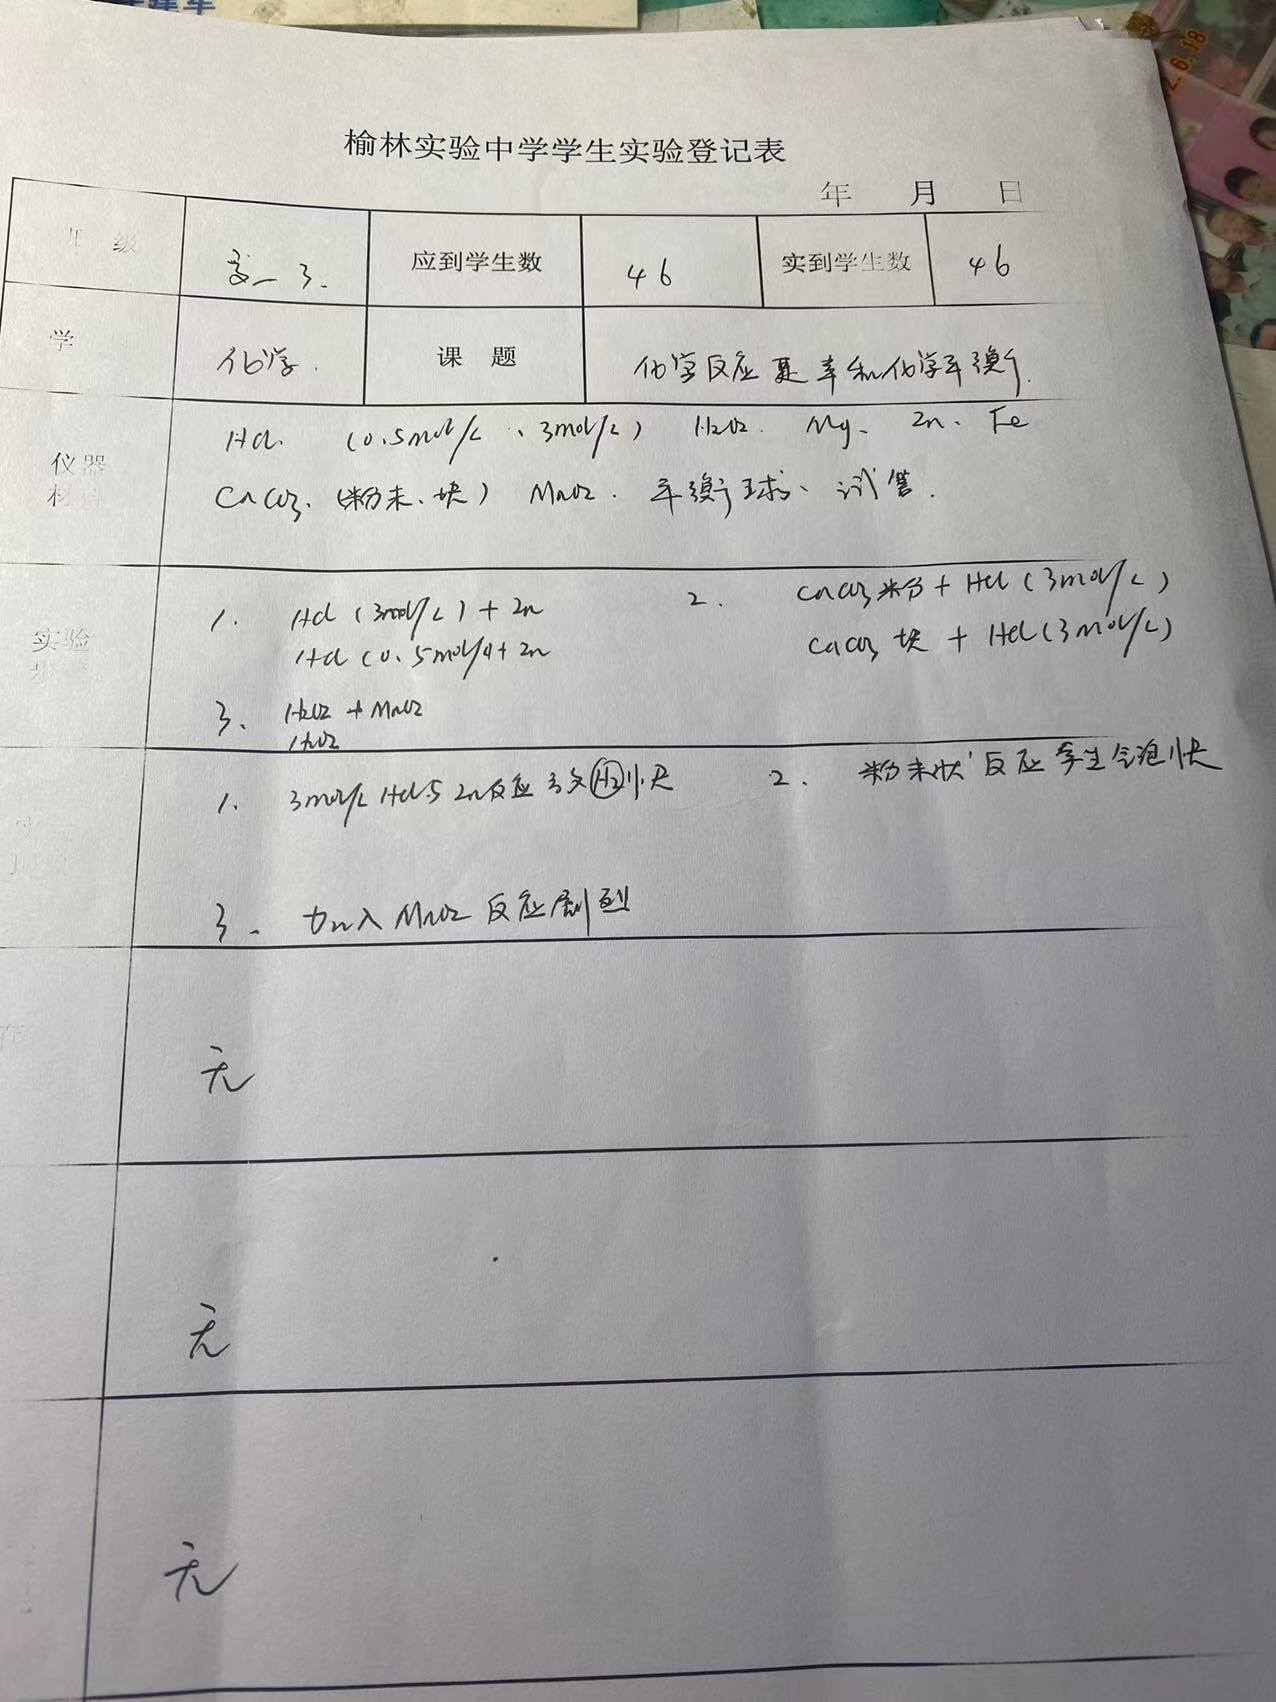 榆林实验中学学生实验登记表
年 月 日
班 级 高一 3. 应到学生数 46 实到学生数 46
学 化学. 课 题 化学反应速率和化学平衡.
仪器 HCl. (0.5mol/L、3mol/L) H2O2. Mg、Zn、Fe
材 CaCO3.(粉末、块) MnO2. 平衡球、试管.
实验
1. HCl (3mol/L) + Zn 2. CaCO3粉 + HCl (3mol/L)
HCl (0.5mol/L) + Zn CaCO3 块 + HCl (3mol/L)
3. H2O2 + MnO2
H2O2
1. 3mol/L HCl与Zn反应 H2 快 2. 粉末状反应产生气泡快
3. 加入MnO2反应剧烈
在
无
无
无